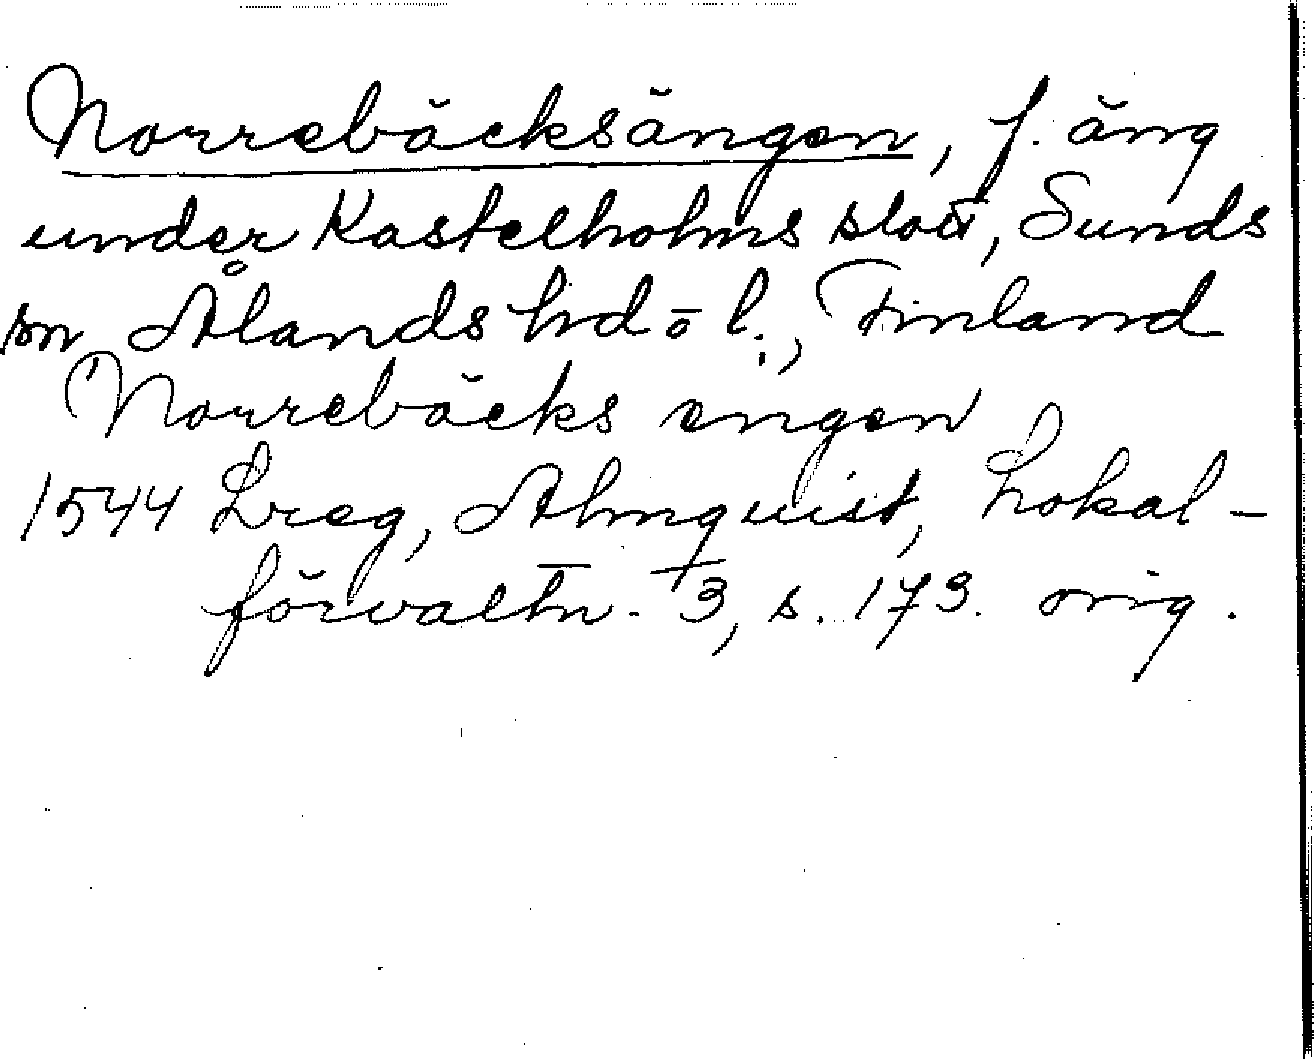 Norrebäcksängen, f. äng
under Kastelholms slott, Sunds
sn Ålands hd o l., Finland
Norrebäcks engen
1544 Lreg, Almquist, Lokal-
förvaltn. 3, s. 173. orig.